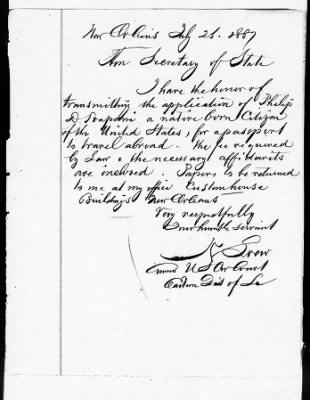 New Orleans July 21. 1887
Hon Secretary of State
I have the honor of
transmitting the application of Philip
D. a native born Citizen
of the United States, for a passport
to travel abroad. The fee required
by Law & the necessary affidavits
are inclosed. Papers to be returned
to me at my office Customhouse
Building New Orleans
Very respectfully
Your humble servant
U S Court
Eastern Dist of La